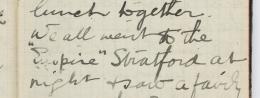 lunch together.
We all went to the
"Empire" Stratford at
night & saw a fairly